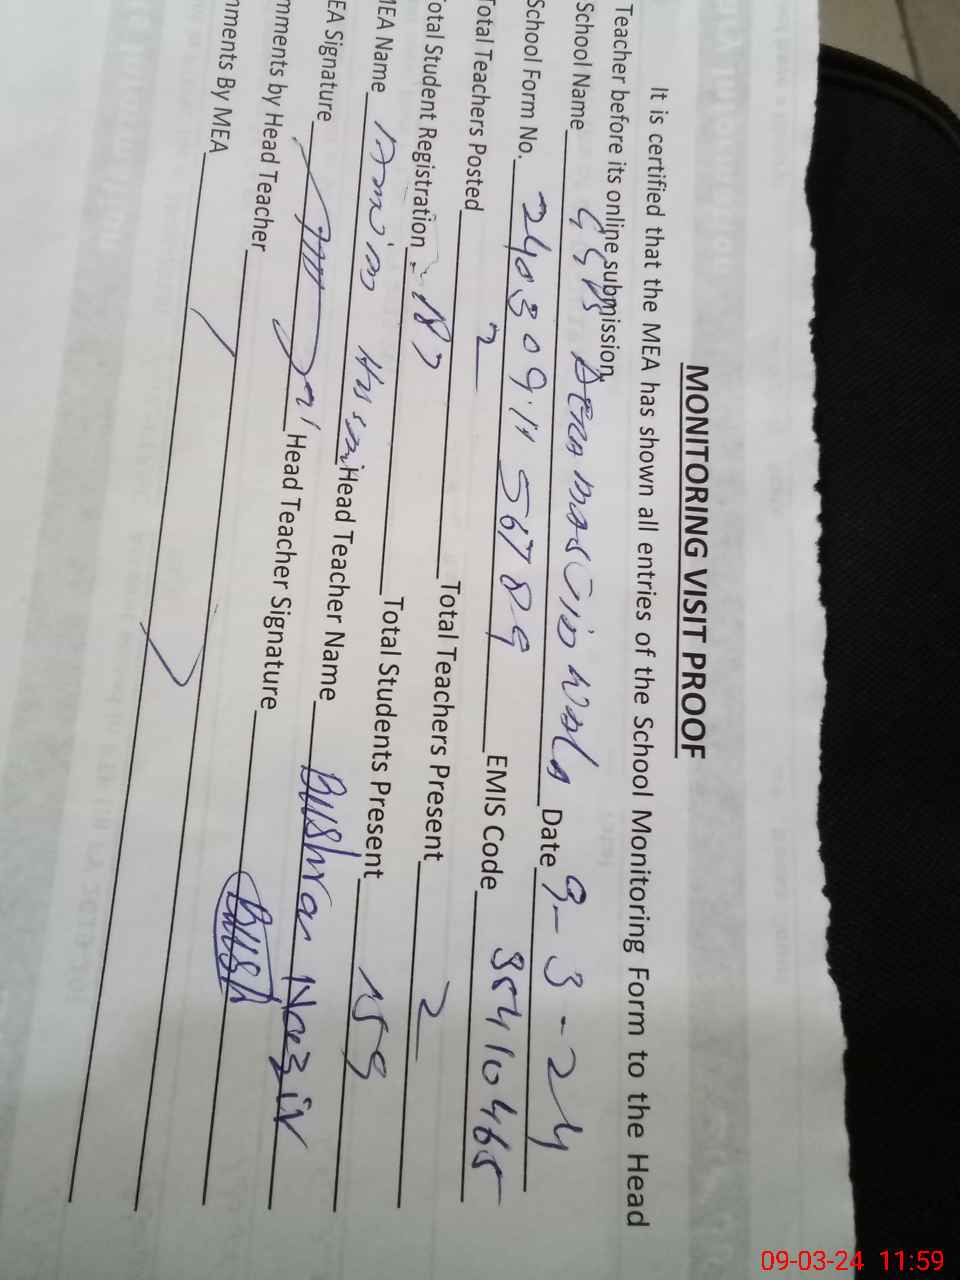 MONITORING VISIT PROOF
It is certified that the MEA has shown all entries of the School Monitoring Form to the Head
Teacher before its online submission.
School Name GGPS Dera Date 9-3-24
School Form No. 24030911 56789 EMIS Code 35410465
Total Teachers Posted 2 Total Teachers Present 2
otal Student Registration 187 Total Students Present 159
MEA Name Hussain Head Teacher Name Bushra Nazir
EA Signature Head Teacher Signature Bush
mments by Head Teacher
mments By MEA
09-03-24 11:59